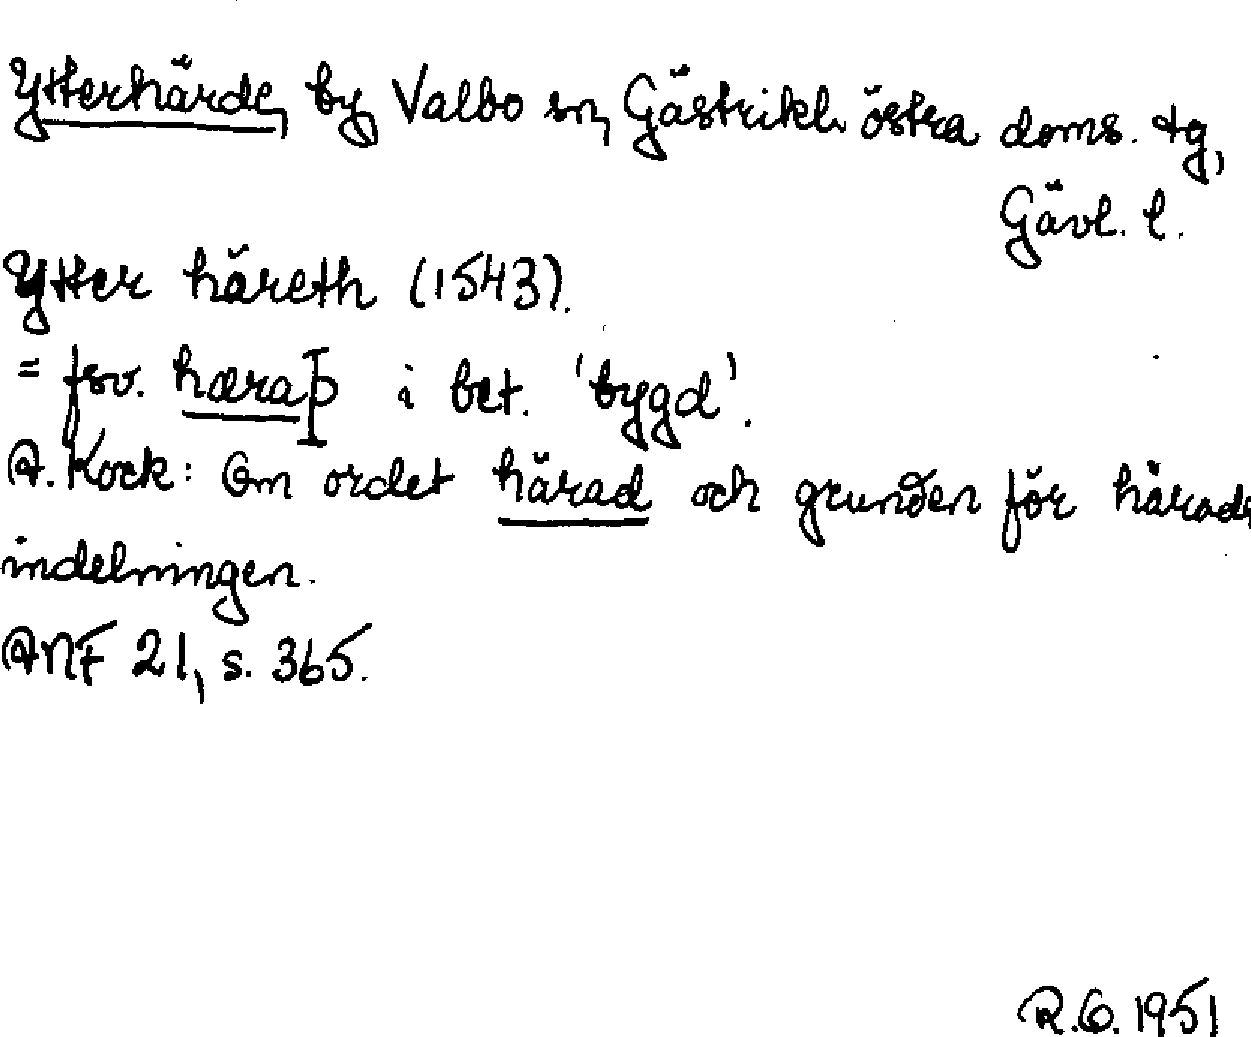 Ytterhärde, by, Valbo sn, Gästrikl. östra doms. tg,
Gävl. l.
Ytter häreth (1543).
= fsv. hæraþ i bet. 'bygd'.
A. Kock: Om ordet härad och grunden för härads
indelningen.
ANF 21, s. 365.
R.O. 1951